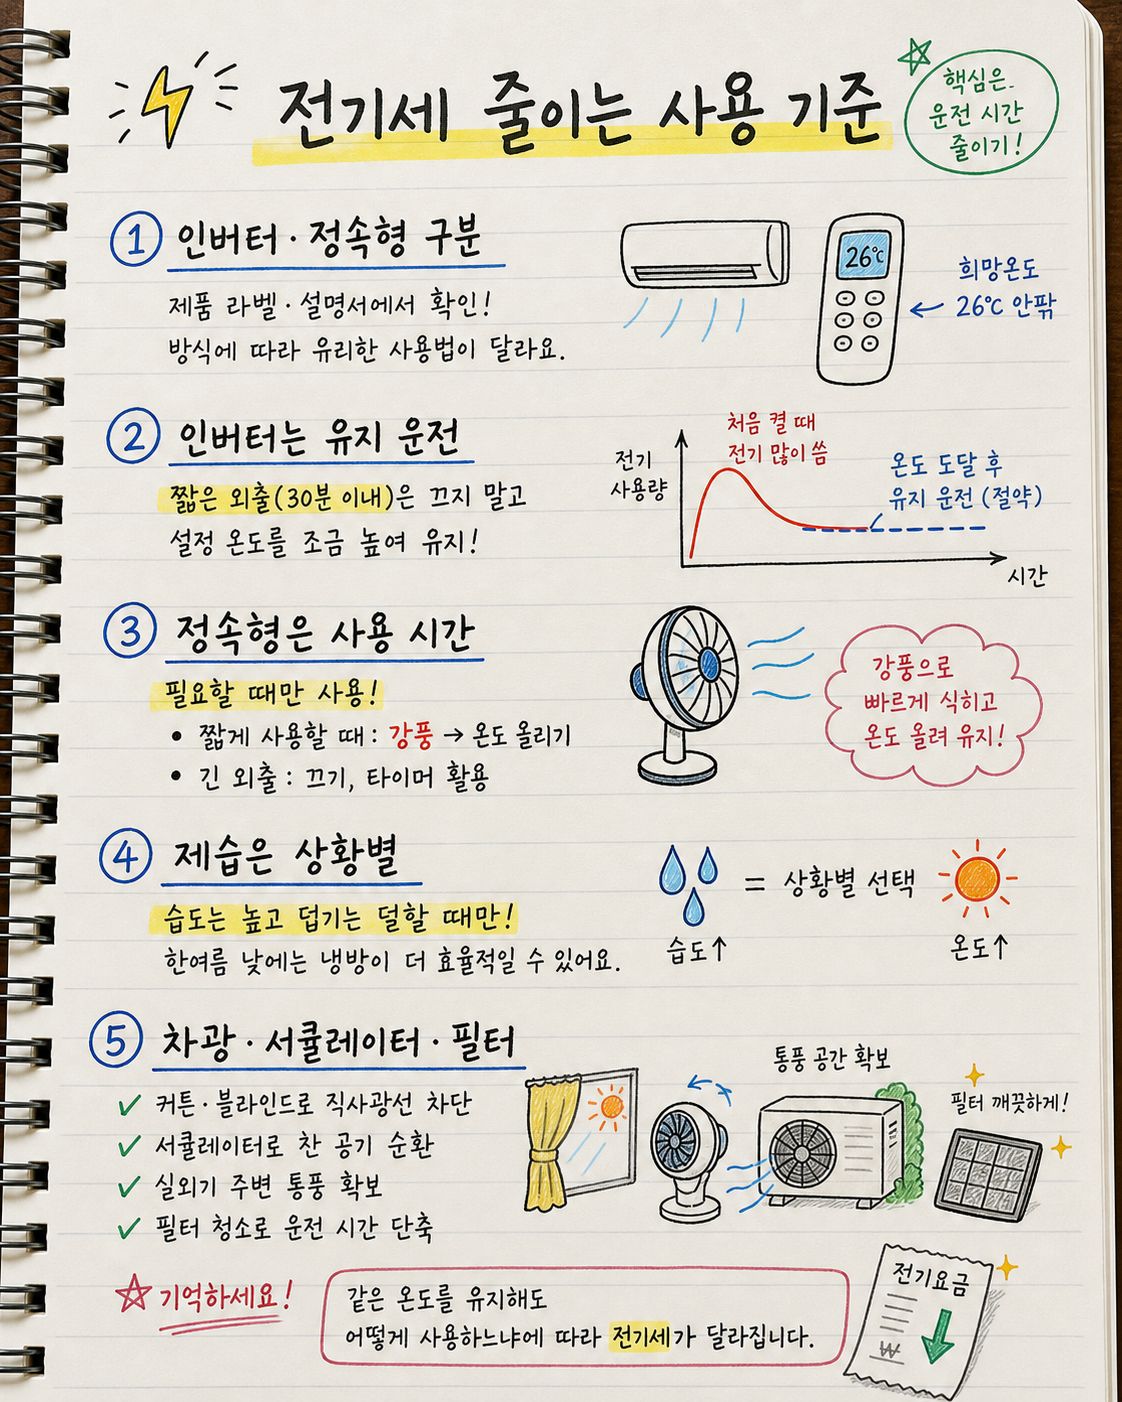 전기세 줄이는 사용 기준
핵심은
운전 시간
줄이기!
1 인버터·정속형 구분
제품 라벨·설명서에서 확인!
방식에 따라 유리한 사용법이 달라요.
26℃
희망온도
26℃ 안팎
2 인버터는 유지 운전
짧은 외출(30분 이내)은 끄지 말고
설정 온도를 조금 높여 유지!
전기
사용량
처음 켤 때
전기 많이 씀
온도 도달 후
유지 운전 (절약)
시간
3 정속형은 사용 시간
필요할 때만 사용!
• 짧게 사용할 때: 강풍 → 온도 올리기
• 긴 외출: 끄기, 타이머 활용
강풍으로
빠르게 식히고
온도 올려 유지!
4 제습은 상황별
습도는 높고 덥기는 덜할 때만!
한여름 낮에는 냉방이 더 효율적일 수 있어요.
= 상황별 선택
습도↑
온도↑
5 차광·서큘레이터·필터
✓ 커튼·블라인드로 직사광선 차단
✓ 서큘레이터로 찬 공기 순환
✓ 실외기 주변 통풍 확보
✓ 필터 청소로 운전 시간 단축
통풍 공간 확보
필터 깨끗하게!
기억하세요!
같은 온도를 유지해도
어떻게 사용하느냐에 따라 전기세가 달라집니다.
전기요금
₩